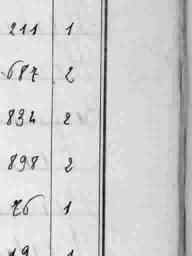 211 1
687 2
834 2
898 2
76 1